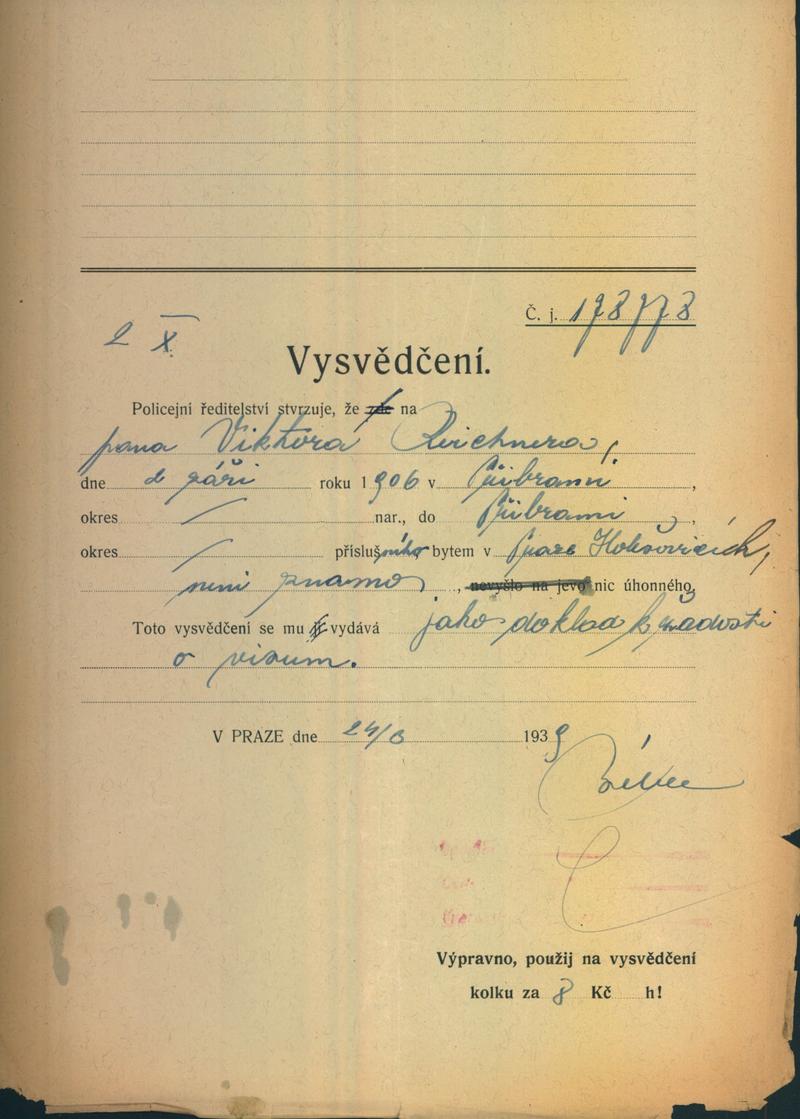 Č. j. 178778
2 X
Vysvědčení.
Policejní ředitelství stvrzuje, že zde na
pana Viktora Reichnera,
dne 2 září roku 1906 v Příbrami,
okres / nar., do Příbrami,
okres / příslušného bytem v Praze Holešovicích,
není známo, nevyšlo na jevo nic úhonného,
Toto vysvědčení se mu vydává jako doklad k žádosti
o visum.
V PRAZE dne 24/6 1939
Výpravno, použij na vysvědčení
kolku za 8 Kč h!